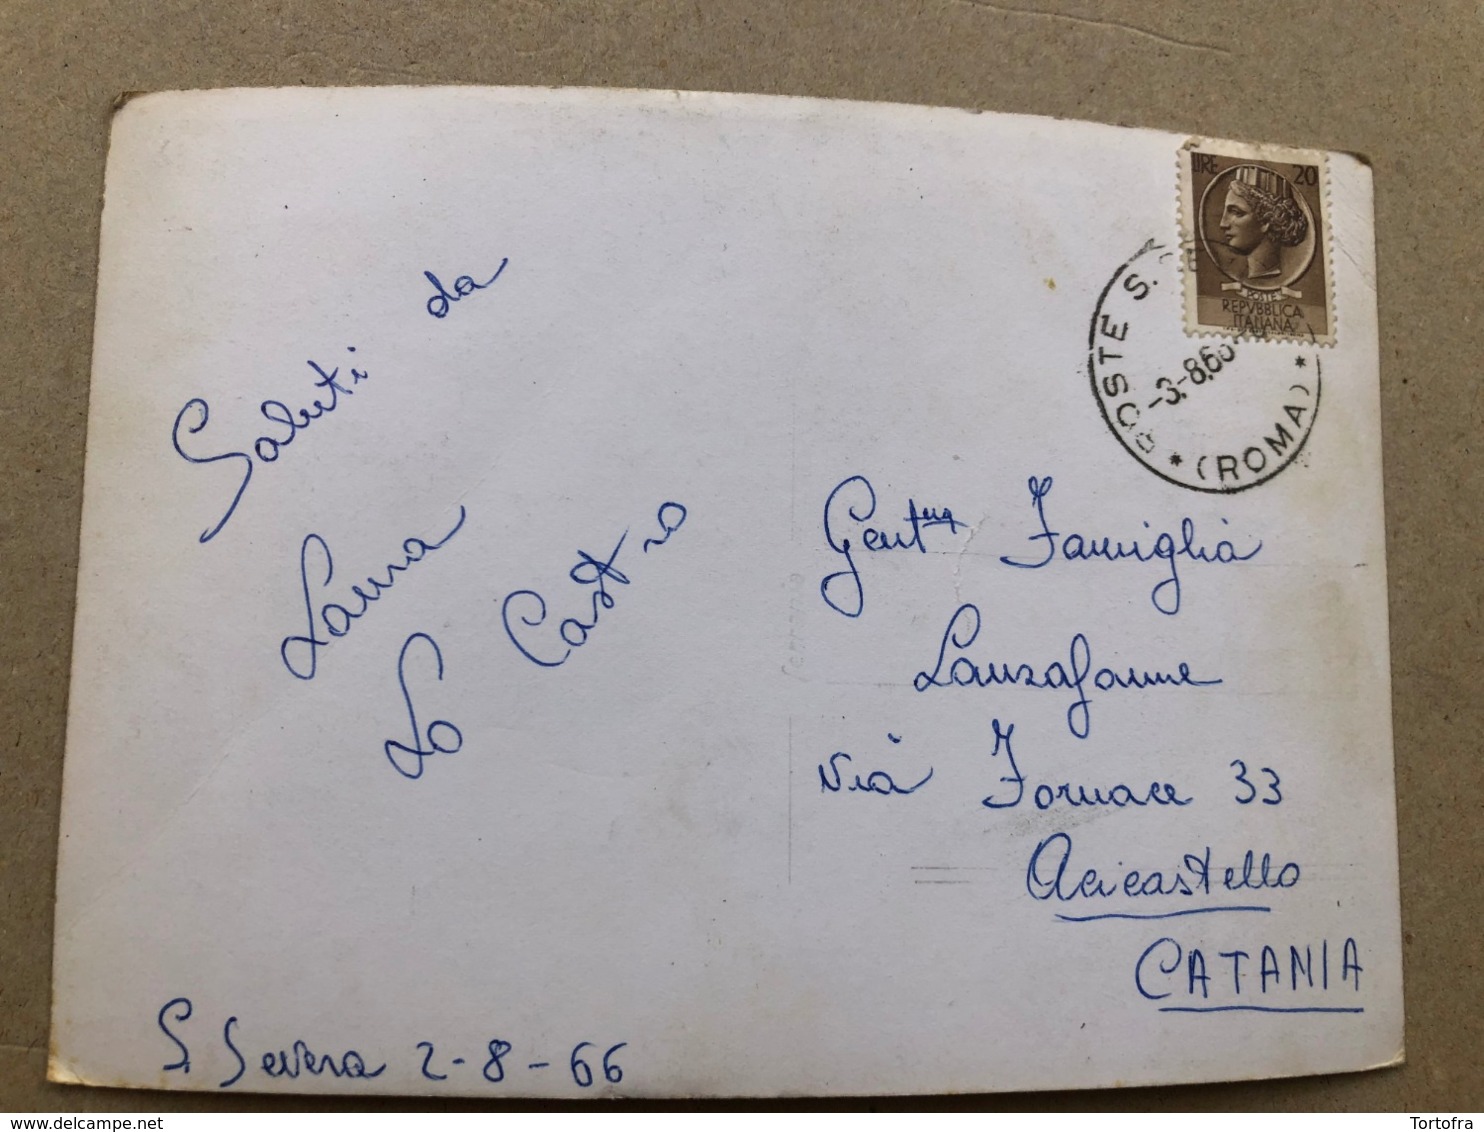 Saluti da
Laura
Lo Castro
S. Severa 2-8-66
LIRE 20
POSTE
REPVBBLICA
ITALIANA
POSTE S. SE
-3.-8.66
* (ROMA) *
Gent.ma Famiglia
Lanzafame
Via Fornace 33
Acicastello
CATANIA
Tortofra